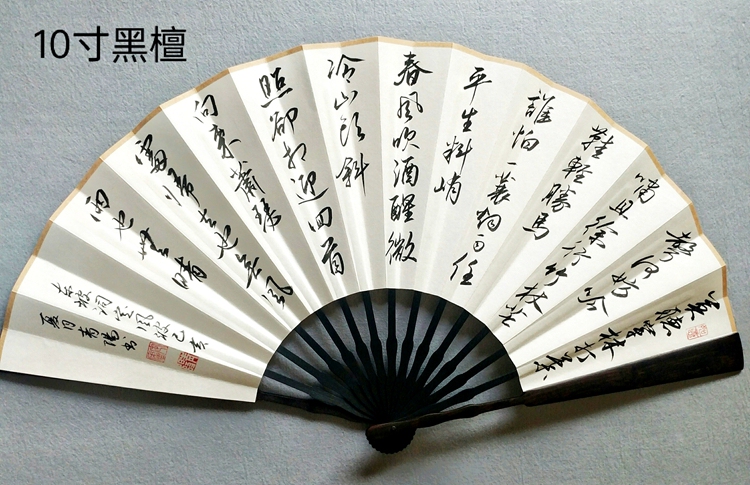 10寸黑檀
莫聽穿林打葉
聲何妨吟
嘯且徐行竹杖芒
鞋輕勝馬
誰怕一蓑烟雨任
平生料峭
春風吹酒醒微
冷山頭斜
照却相迎回首
向來蕭瑟
處歸去也無風
雨也無晴
東坡詞定風波己亥
夏月青陽書